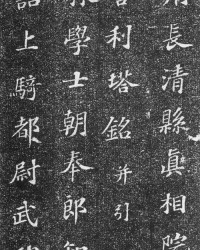 長清縣眞相院
舍利塔銘并引
學士朝奉郎知
誥上騎都尉武